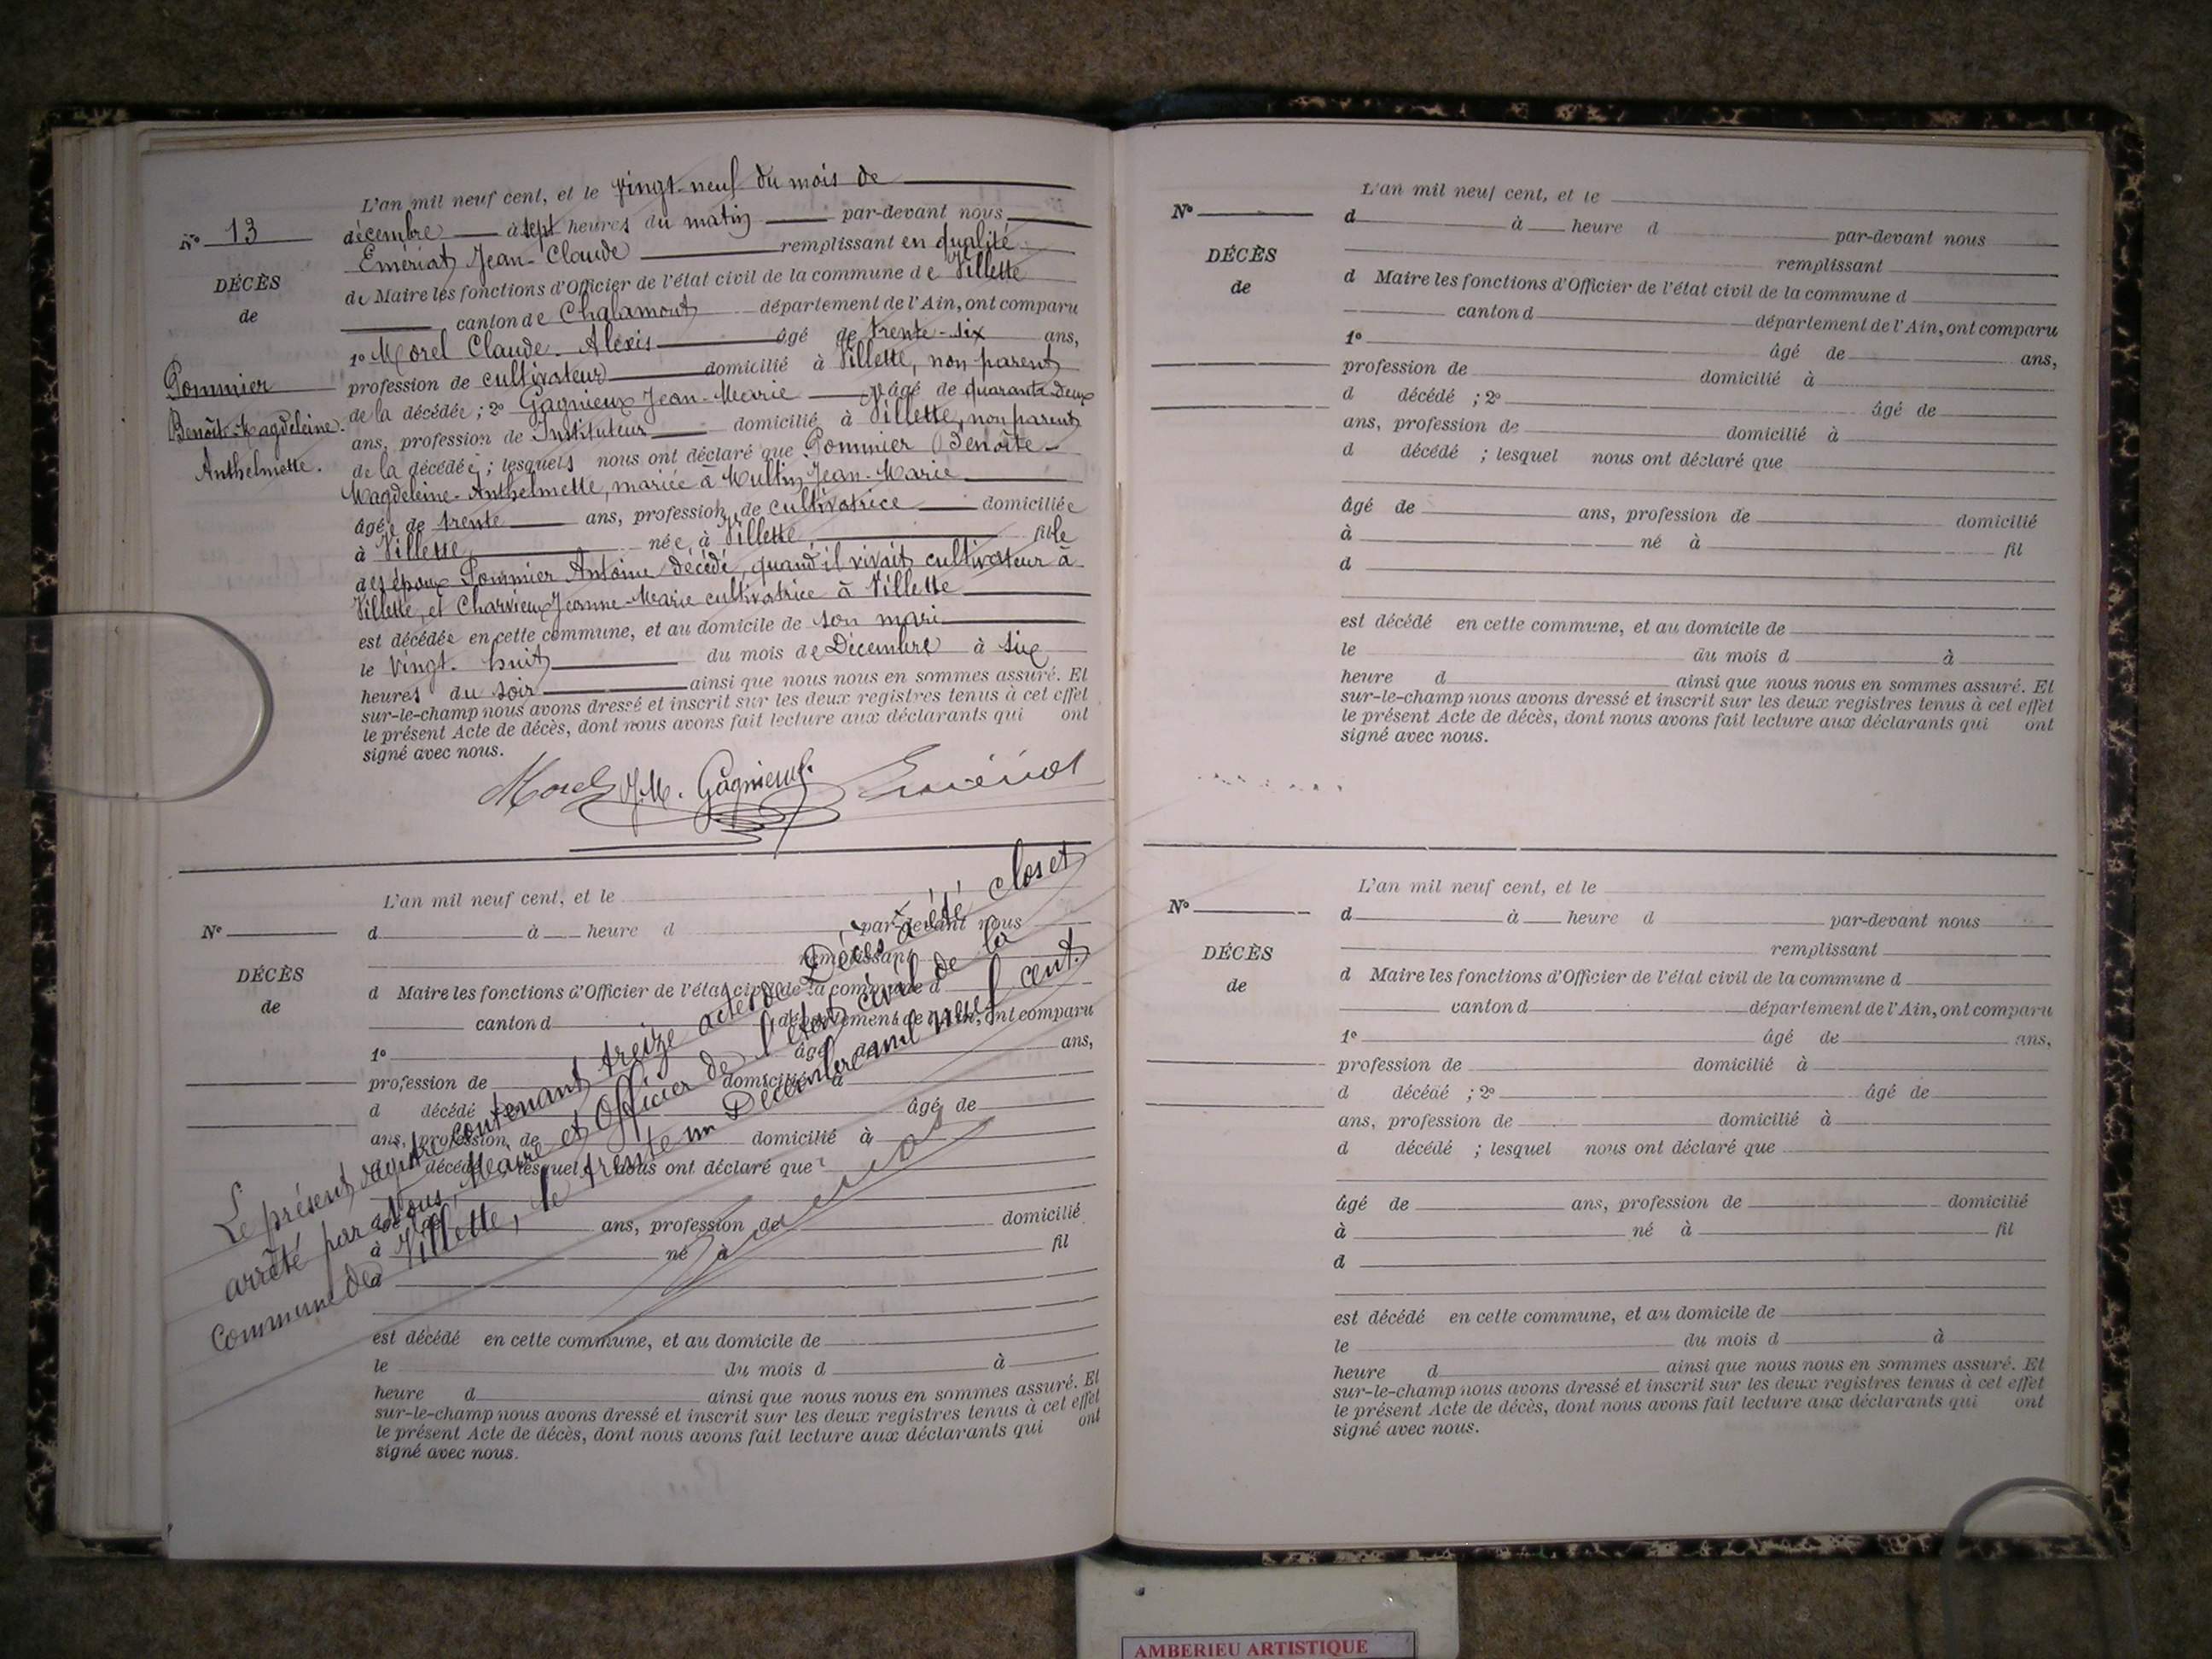 L'an mil neuf cent, et le vingt-neuf du mois de
N° 13
décembre à sept heures du matin par-devant nous
Emériat Jean-Claude remplissant en qualité
DÉCÈS
de Maire les fonctions d'Officier de l'état civil de la commune de Villette
de
canton de Chalamont département de l'Ain, ont comparu
1° Morel Claude-Alexis âgé de trente-six ans,
Pommier
profession de cultivateur domicilié à Villette, non parent
de la décédée ; 2° Gagnieux Jean-Marie âgé de quarante-deux
Benoîte-Magdeleine.
ans, profession de Instituteur domicilié à Villette, non parent
Anthelmette.
de la décédée ; lesquels nous ont déclaré que Pommier Benoîte-
Magdeleine-Anthelmette, mariée à Multin Jean-Marie
âgée de trente ans, profession de cultivatrice domiciliée
à Villette née à Villette fille
des époux Pommier Antoine décédé, quand il vivait cultivateur à
Villette, et Charvieux Jeanne-Marie cultivatrice à Villette
est décédée en cette commune, et au domicile de son mari
le vingt-huit du mois de Décembre à six
heures du soir ainsi que nous nous en sommes assuré. Et
sur-le-champ nous avons dressé et inscrit sur les deux registres tenus à cet effet
le présent Acte de décès, dont nous avons fait lecture aux déclarants qui ont
signé avec nous.
Morel J.M. Gagnieux Emériat
L'an mil neuf cent, et le
N° d à heure d par-devant nous
remplissant
DÉCÈS
d Maire les fonctions d'Officier de l'état civil de la commune d
de
canton d département de l'Ain, ont comparu
1° âgé de ans,
profession de domicilié à
d décédé ; 2° âgé de
ans, profession de domicilié à
d décédé ; lesquel nous ont déclaré que
âgé de ans, profession de domicilié
à né à fil
d
est décédé en cette commune, et au domicile de
le du mois d à
heure d ainsi que nous nous en sommes assuré. Et
sur-le-champ nous avons dressé et inscrit sur les deux registres tenus à cet effet
le présent Acte de décès, dont nous avons fait lecture aux déclarants qui ont
signé avec nous.
Le présent registre contenant treize actes de Décès a été clos et
arrêté par Nous, Maire et Officier de l'état civil de la
Commune de Villette, le trente un Décembre mil neuf cent.
Emériat
L'an mil neuf cent, et le
N° d à heure d par-devant nous
remplissant
DÉCÈS
d Maire les fonctions d'Officier de l'état civil de la commune d
de
canton d département de l'Ain, ont comparu
1° âgé de ans,
profession de domicilié à
d décédé ; 2° âgé de
ans, profession de domicilié à
d décédé ; lesquel nous ont déclaré que
âgé de ans, profession de domicilié
à né à fil
d
est décédé en cette commune, et au domicile de
le du mois d à
heure d ainsi que nous nous en sommes assuré. Et
sur-le-champ nous avons dressé et inscrit sur les deux registres tenus à cet effet
le présent Acte de décès, dont nous avons fait lecture aux déclarants qui ont
signé avec nous.
L'an mil neuf cent, et le
N° d à heure d par-devant nous
remplissant
DÉCÈS
d Maire les fonctions d'Officier de l'état civil de la commune d
de
canton d département de l'Ain, ont comparu
1° âgé de ans,
profession de domicilié à
d décédé ; 2° âgé de
ans, profession de domicilié à
d décédé ; lesquel nous ont déclaré que
âgé de ans, profession de domicilié
à né à fil
d
est décédé en cette commune, et au domicile de
le du mois d à
heure d ainsi que nous nous en sommes assuré. Et
sur-le-champ nous avons dressé et inscrit sur les deux registres tenus à cet effet
le présent Acte de décès, dont nous avons fait lecture aux déclarants qui ont
signé avec nous.
AMBERIEU ARTISTIQUE